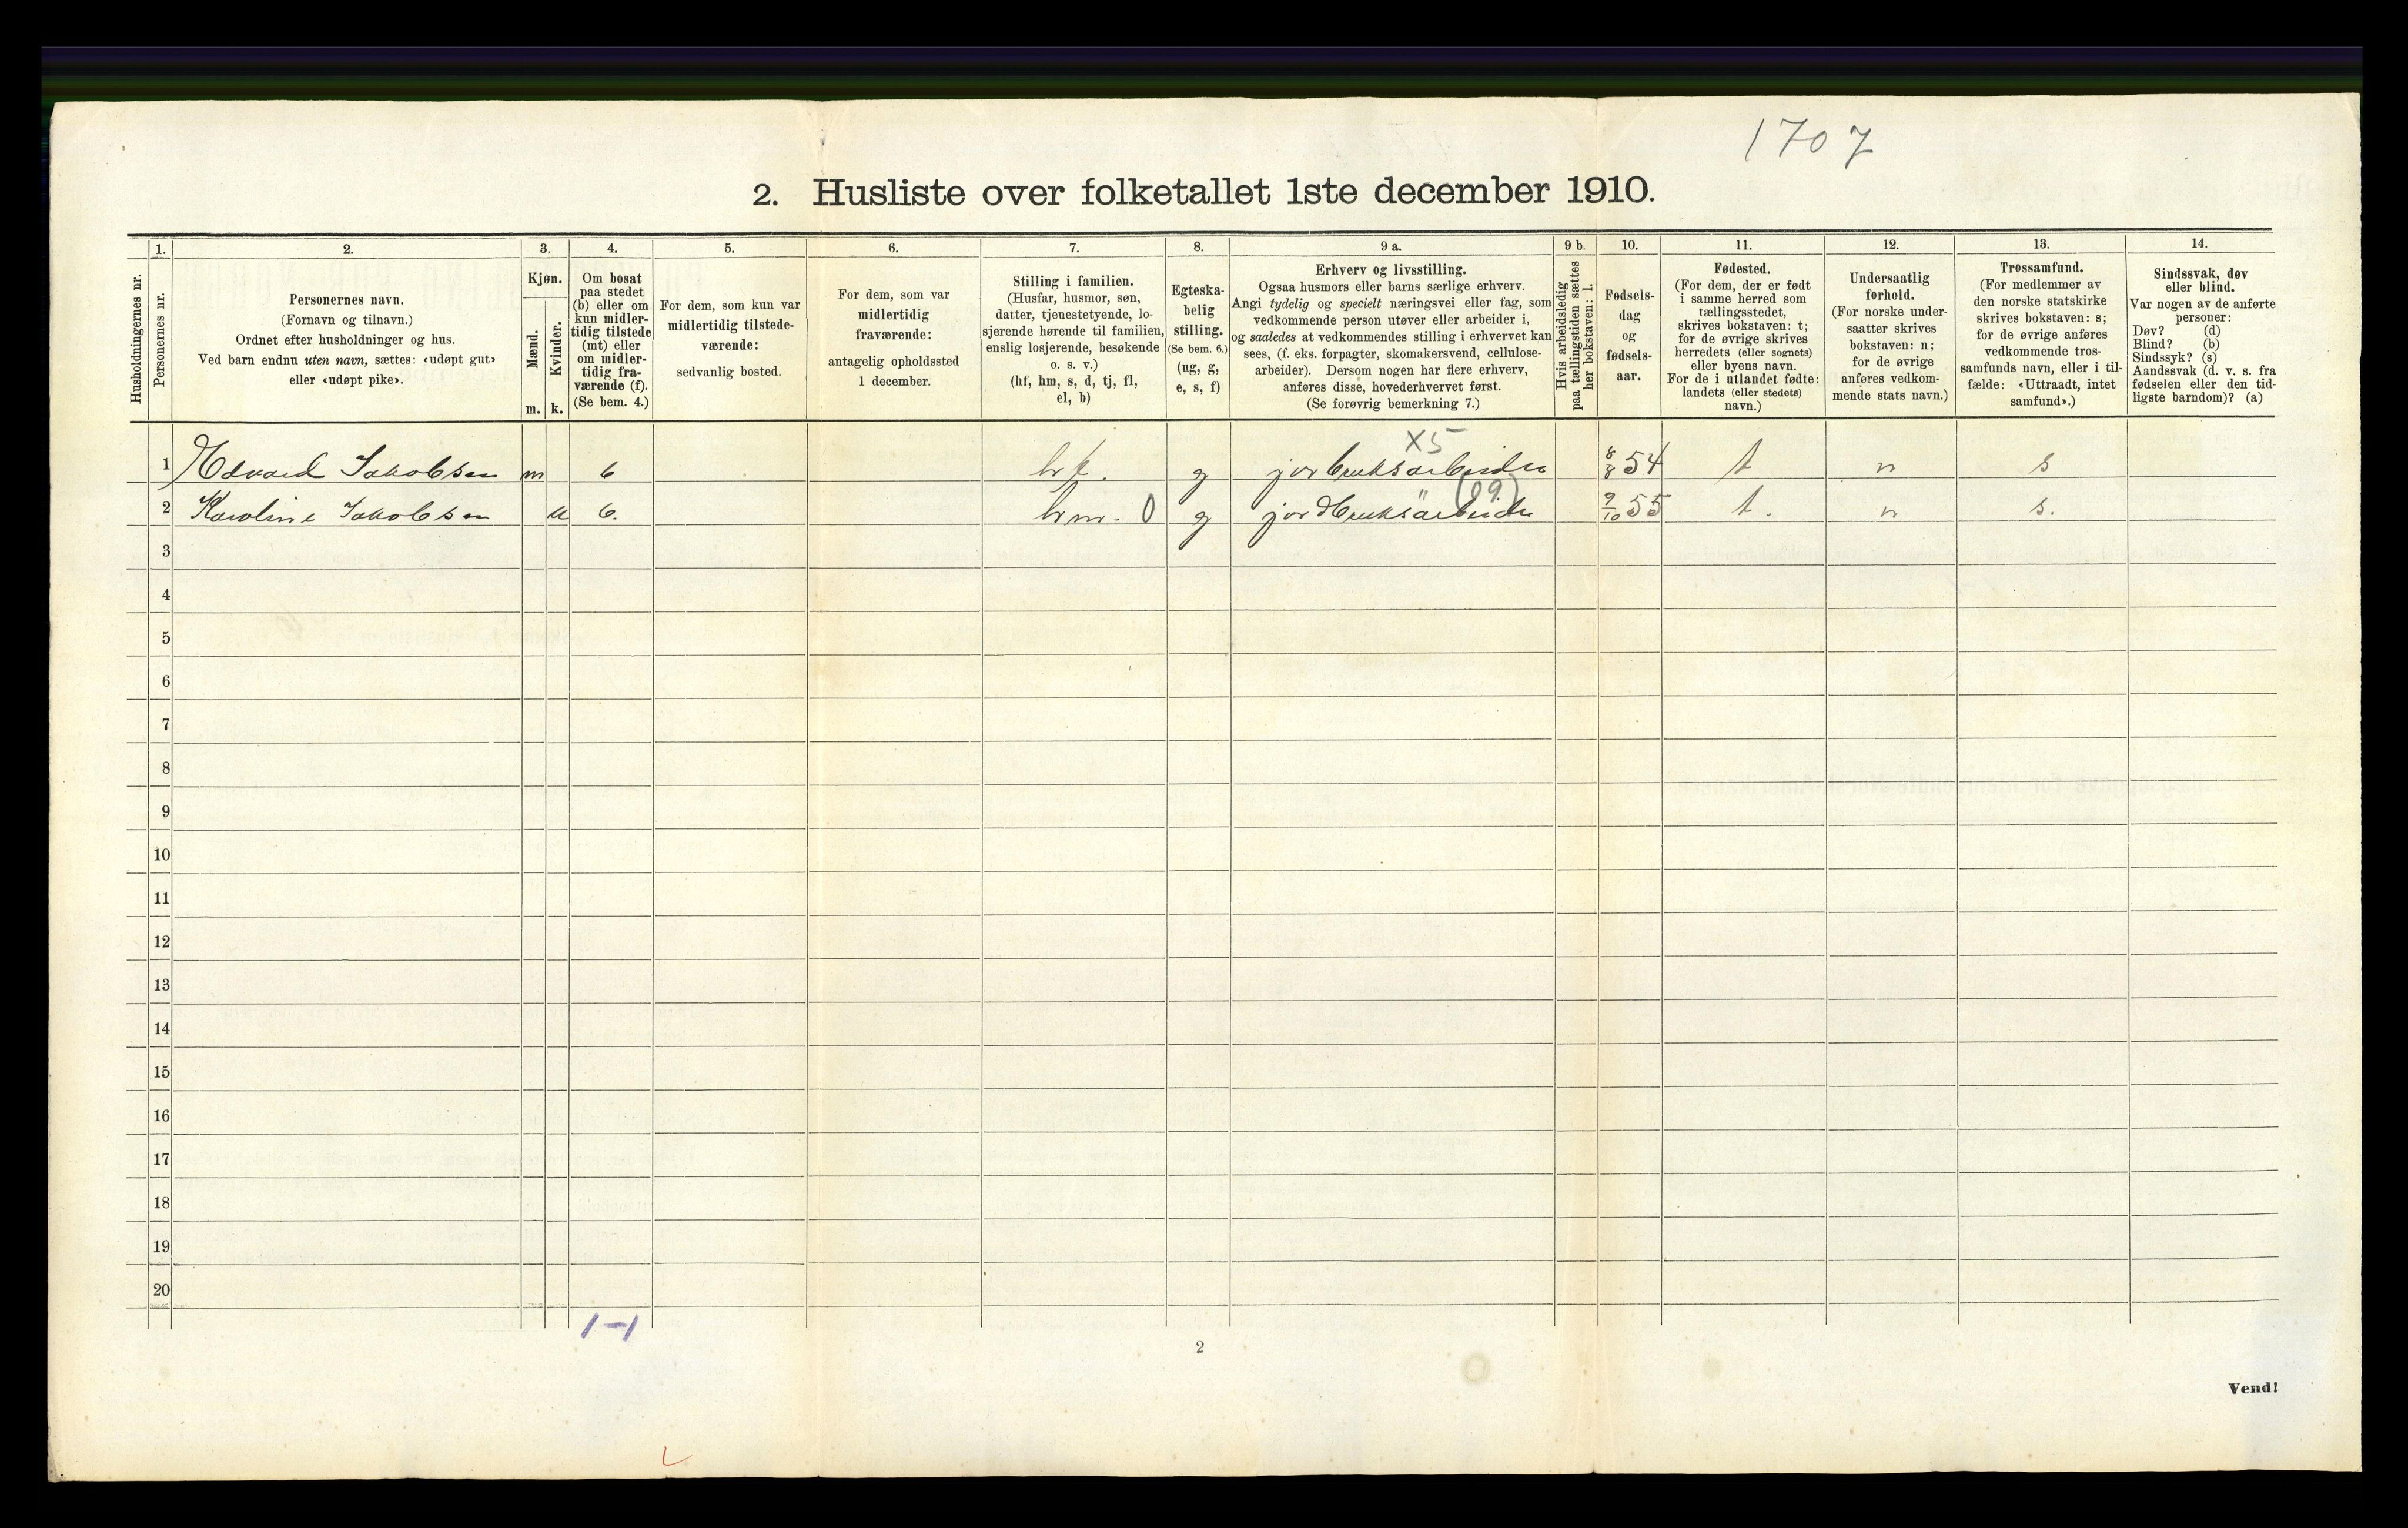 1707
2. Husliste over folketallet 1ste december 1910.
Husholdningernes nr.
1.
Personernes nr.
2.
Personernes navn.
(Fornavn og tilnavn.)
Ordnet efter husholdninger og hus.
Ved barn endnu uten navn, sættes: «udøpt gut»
eller «udøpt pike».
3.
Kjøn.
Mænd.
m.
Kvinder.
k.
4.
Om bosat
paa stedet
(b) eller om
kun midler-
tidig tilstede
(mt) eller
om midler-
tidig fra-
værende (f).
(Se bem. 4.)
5.
For dem, som kun var
midlertidig tilstede-
værende:
sedvanlig bosted.
6.
For dem, som var
midlertidig
fraværende:
antagelig opholdssted
1 december.
7.
Stilling i familien.
(Husfar, husmor, søn,
datter, tjenestetyende, lo-
sjerende hørende til familien,
enslig losjerende, besøkende
o. s. v.)
(hf, hm, s, d, tj, fl,
el, b)
8.
Egteska-
belig
stilling.
(Se bem. 6.)
(ug, g,
e, s, f)
9 a.
Erhverv og livsstilling.
Ogsaa husmors eller barns særlige erhverv.
Angi tydelig og specielt næringsvei eller fag, som
vedkommende person utøver eller arbeider i,
og saaledes at vedkommendes stilling i erhvervet kan
sees, (f. eks. forpagter, skomakersvend, cellulose-
arbeider). Dersom nogen har flere erhverv,
anføres disse, hovederhvervet først.
(Se forøvrig bemerkning 7.)
9 b.
Hvis arbeidsledig
paa tællingstiden sættes
her bokstaven: l.
10.
Fødsels-
dag
og
fødsels-
aar.
11.
Fødested.
(For dem, der er født
i samme herred som
tællingsstedet,
skrives bokstaven: t;
for de øvrige skrives
herredets (eller sognets)
eller byens navn.
For de i utlandet fødte:
landets (eller stedets)
navn.)
12.
Undersaatlig
forhold.
(For norske under-
saatter skrives
bokstaven: n;
for de øvrige
anføres vedkom-
mende stats navn.)
13.
Trossamfund.
(For medlemmer av
den norske statskirke
skrives bokstaven: s;
for de øvrige anføres
vedkommende tros-
samfunds navn, eller i til-
fælde: «Uttraadt, intet
samfund».)
14.
Sindssvak, døv
eller blind.
Var nogen av de anførte
personer:
Døv? (d)
Blind? (b)
Sindssyk? (s)
Aandssvak (d. v. s. fra
fødselen eller den tid-
ligste barndom)? (a)
X5
1 Edvard Jakobsen m b hf. g jorbruksarbeider 8/8 54 t n s
(09)
2 Karoline Jakobsen k b. hm. 0 g jordbruksarbeider 9/10 55 t. n s.
3
4
5
6
7
8
9
10
11
12
13
14
15
16
17
18
19
20
1-1
2
Vend!